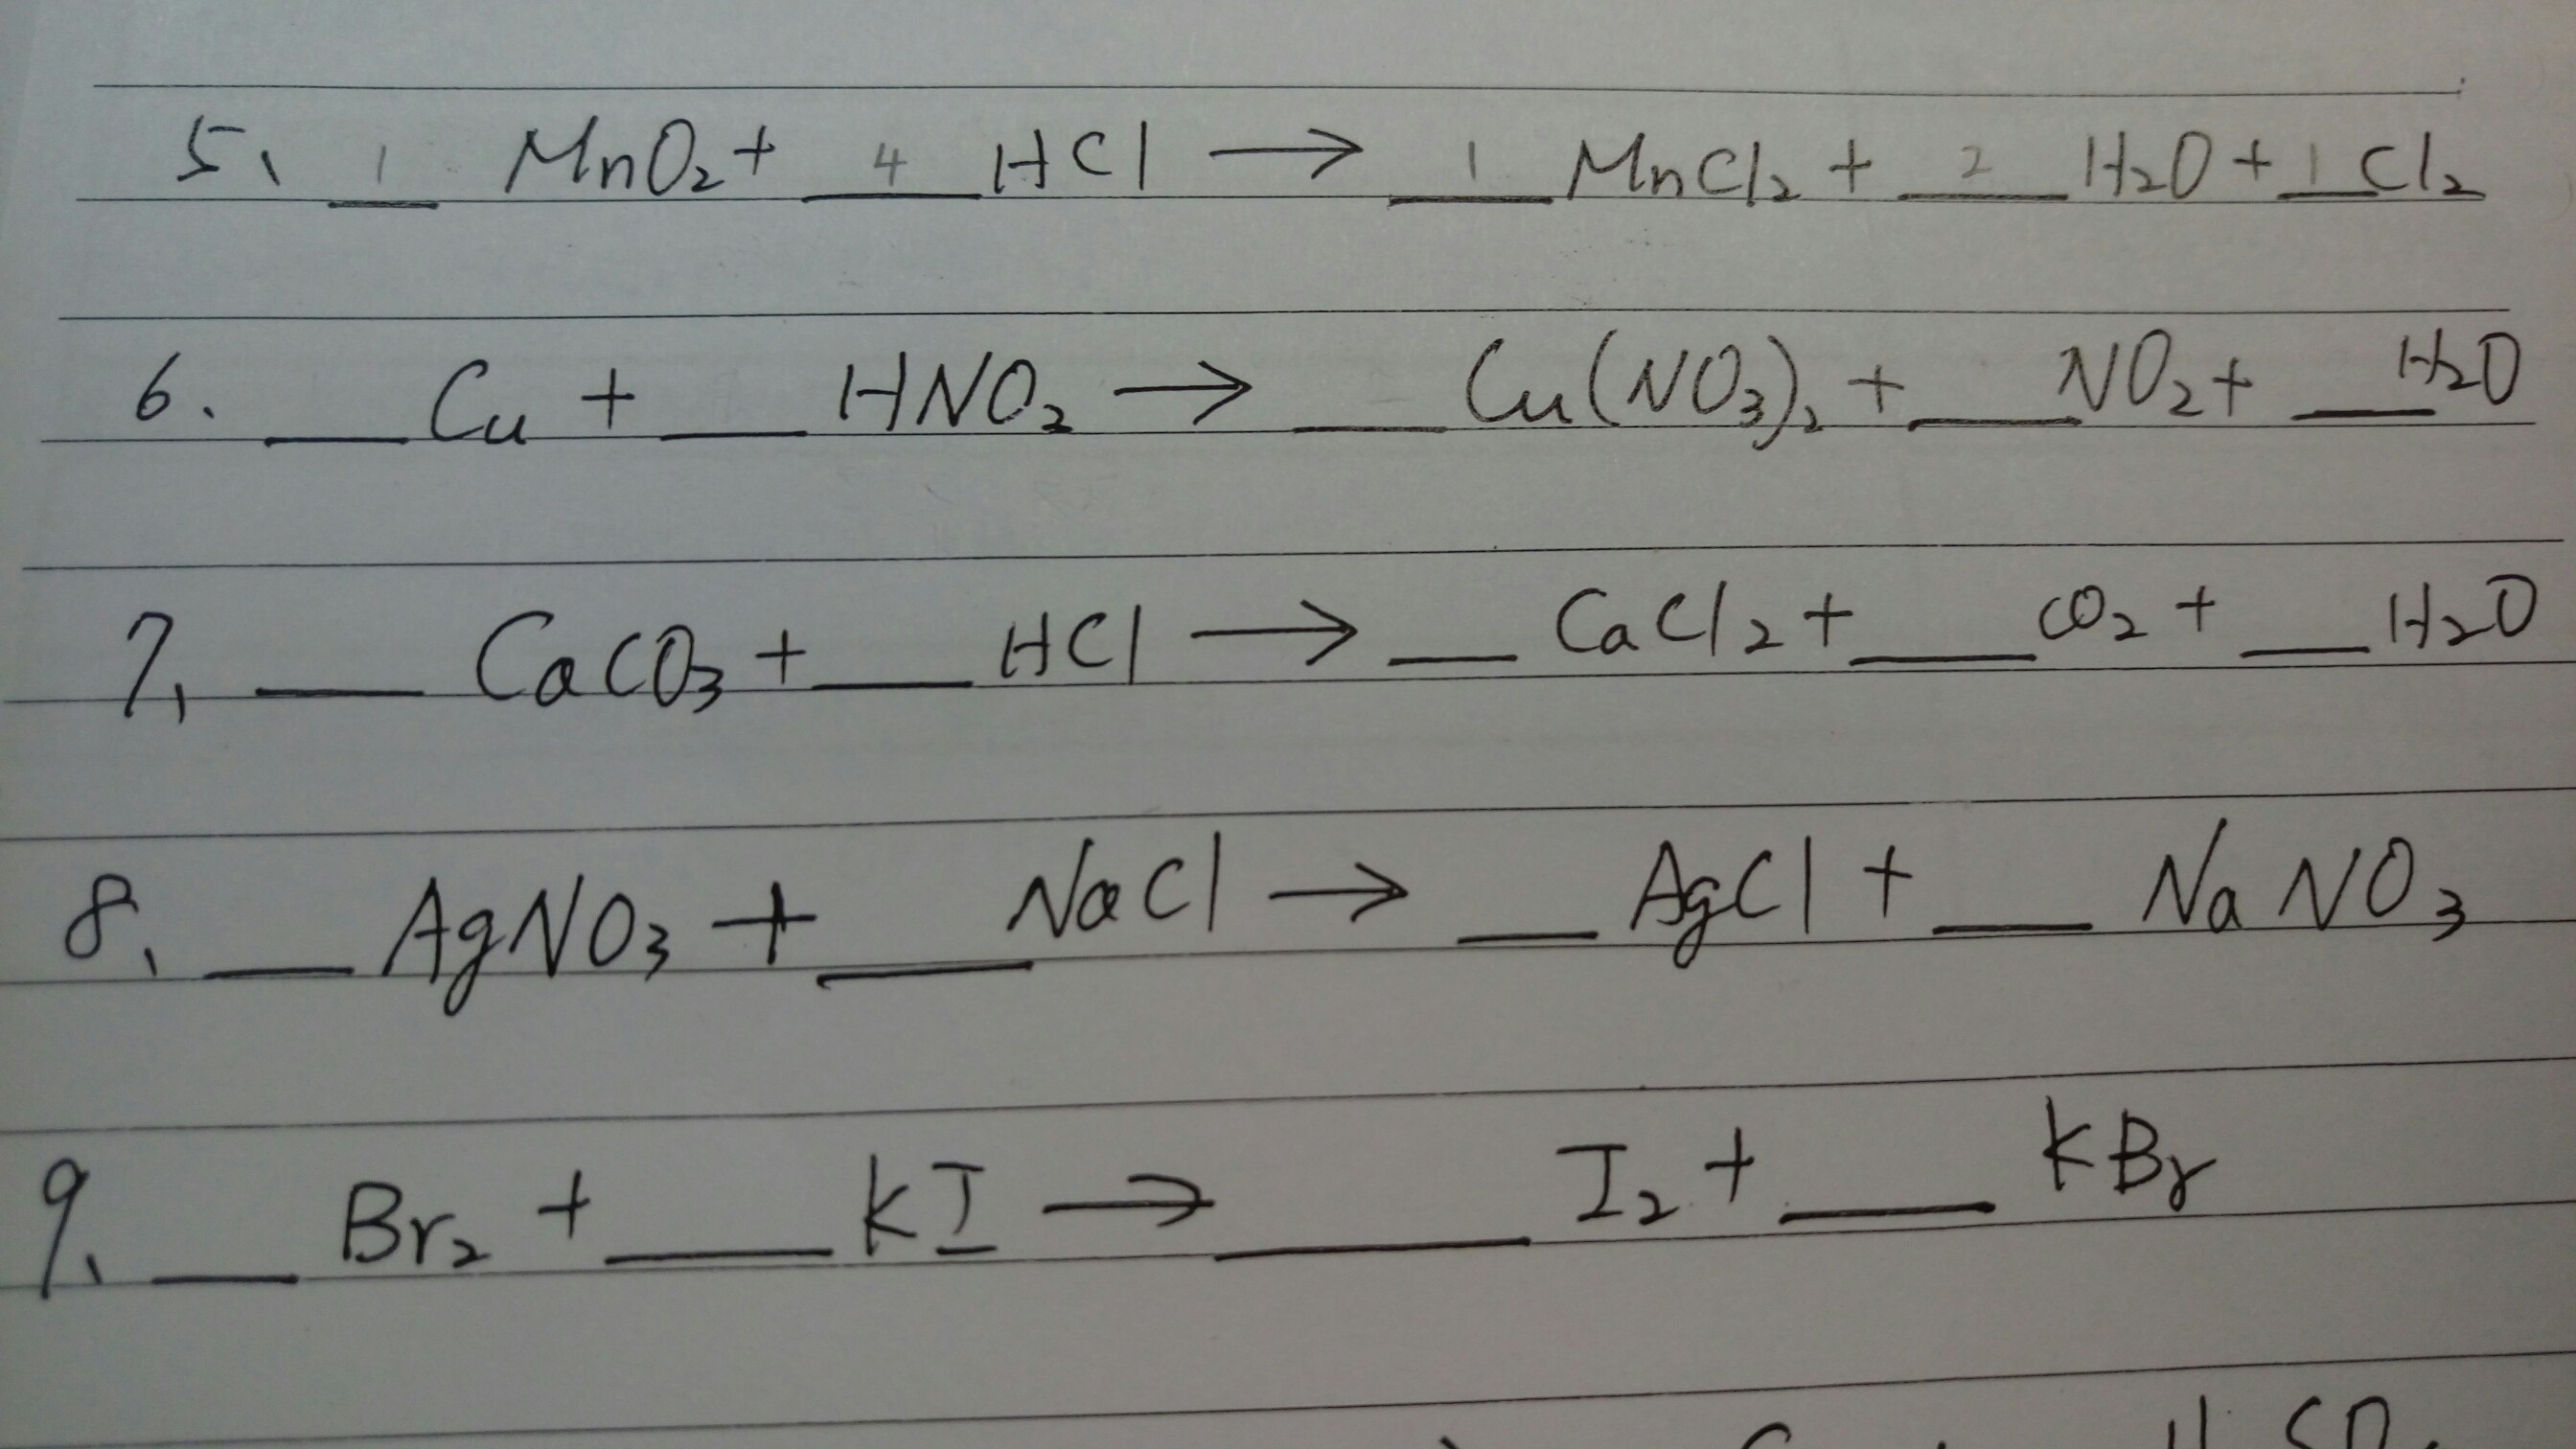 5、 1 MnO₂ + 4 HCl → 1 MnCl₂ + 2 H₂O + 1 Cl₂
6. ___ Cu + ___ HNO₂ → ___ Cu(NO₃)₂ + ___ NO₂ + ___ H₂O
7、 ___ CaCO₃ + ___ HCl → ___ CaCl₂ + ___ CO₂ + ___ H₂O
8、 ___ AgNO₃ + ___ NaCl → ___ AgCl + ___ NaNO₃
9、 ___ Br₂ + ___ KI → ___ I₂ + ___ KBr